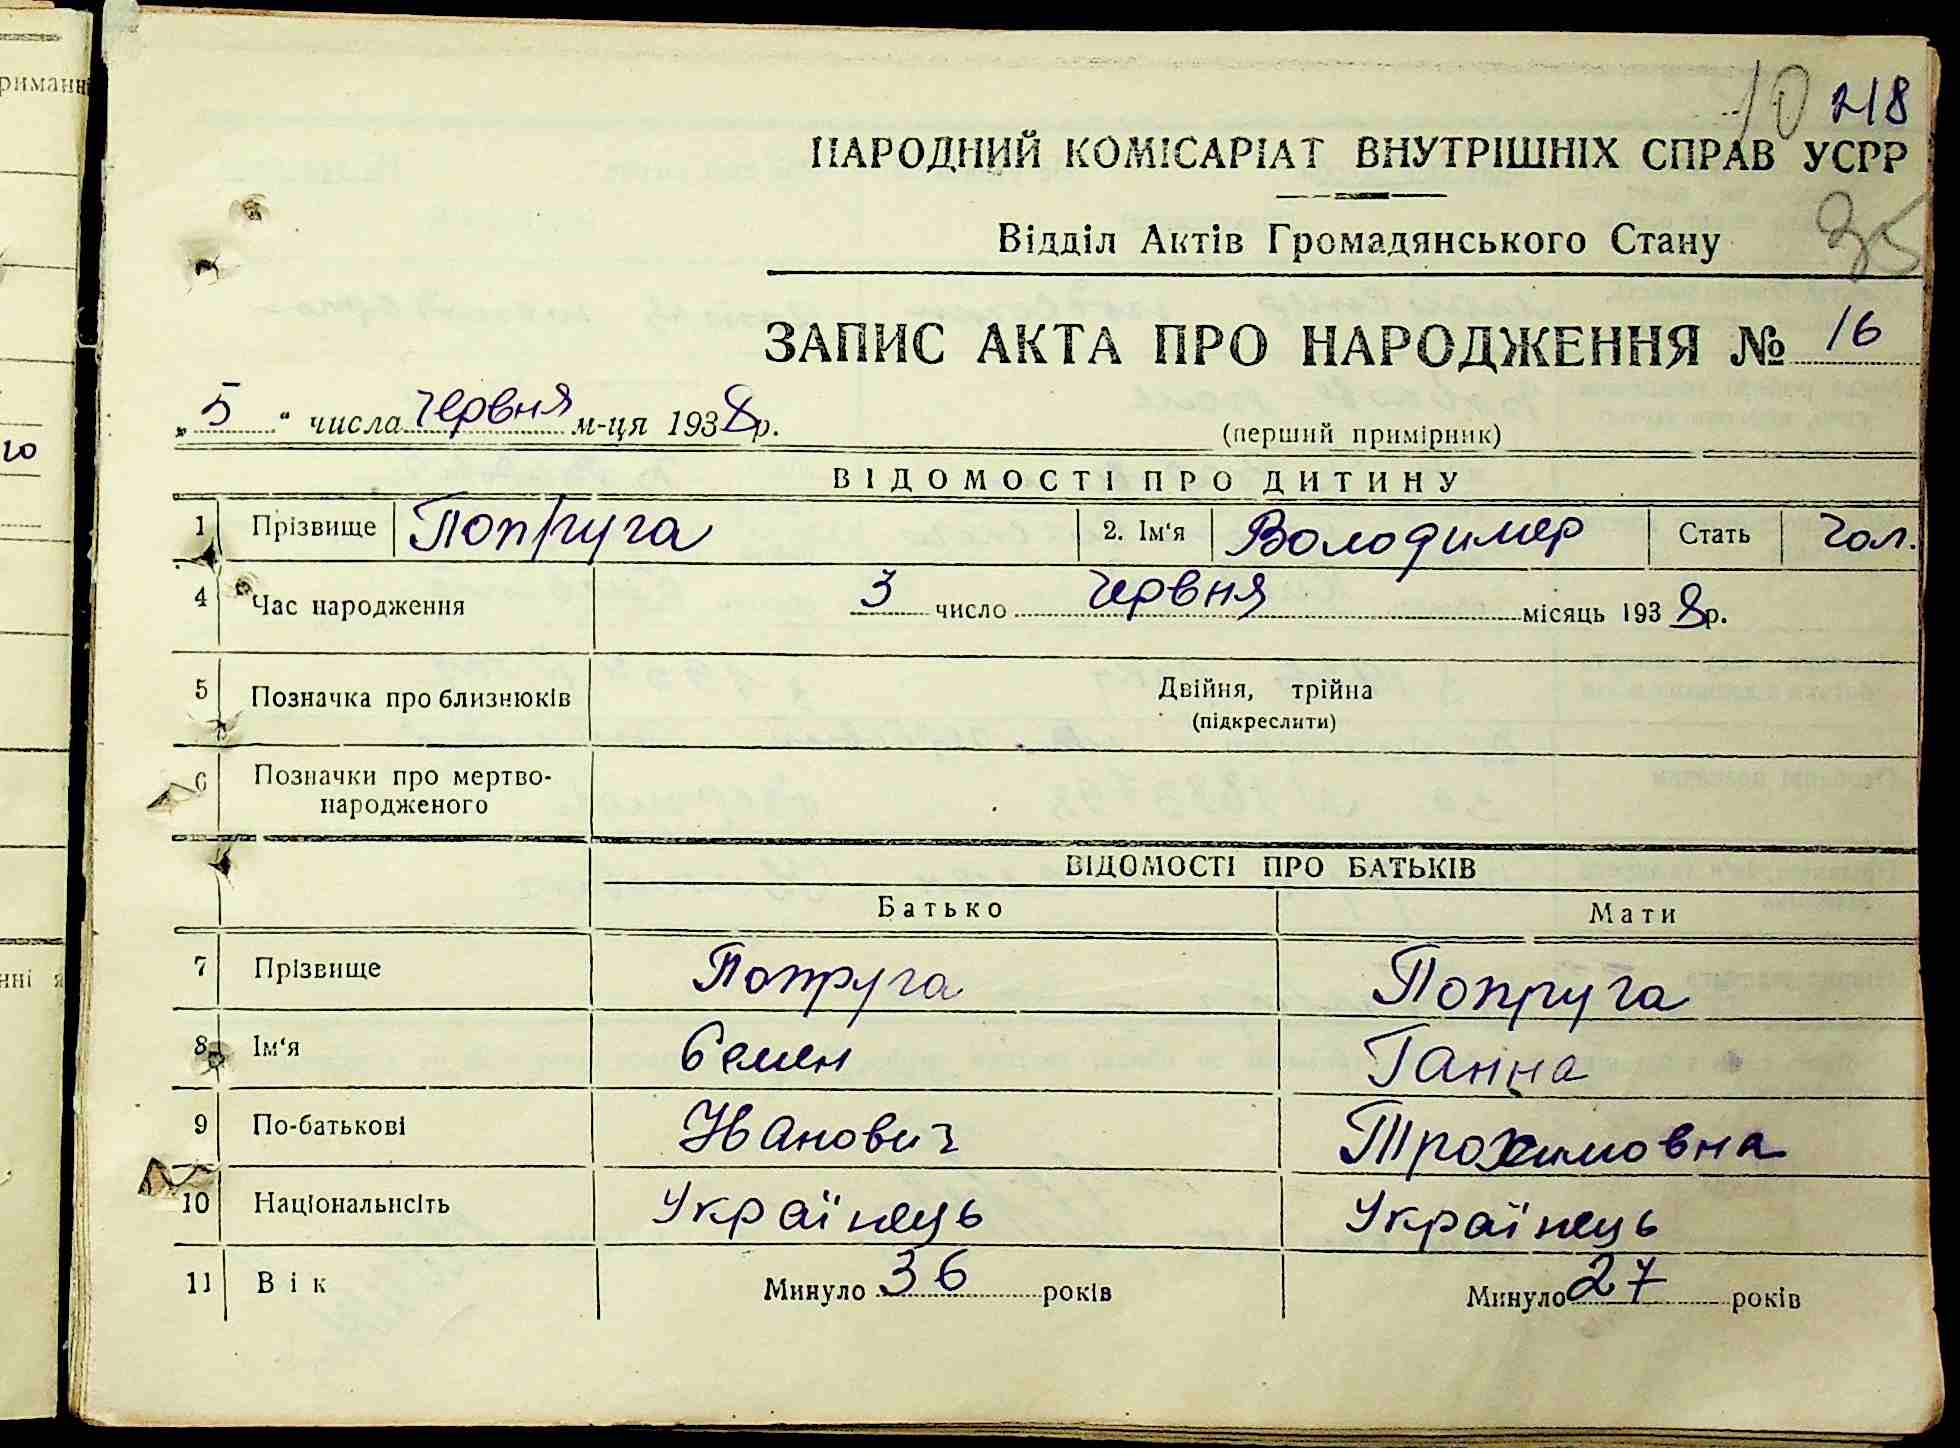 риманн
10 218
НАРОДНИЙ КОМІСАРІАТ ВНУТРІШНІХ СПРАВ УСРР
35
Відділ Актів Громадянського Стану
ЗАПИС АКТА ПРО НАРОДЖЕННЯ № 16
„5“ числа червня м-ця 1938р.
(перший примірник)
ВІДОМОСТІ ПРО ДИТИНУ
1 Прізвище Попруга 2. Ім‘я Володимер Стать Чол.
4 Час народження 3 число червня місяць 1938р.
5 Позначка про близнюків Двійня, трійна
(підкреслити)
6 Позначки про мертво-
народженого
ВІДОМОСТІ ПРО БАТЬКІВ
Батько Мати
7 Прізвище Попруга Попруга
8 Ім‘я Семен Ганна
9 По-батькові Иванович Трохимовна
10 Національнсіть Українець Українець
11 Вік Минуло 36 років Минуло 27 років